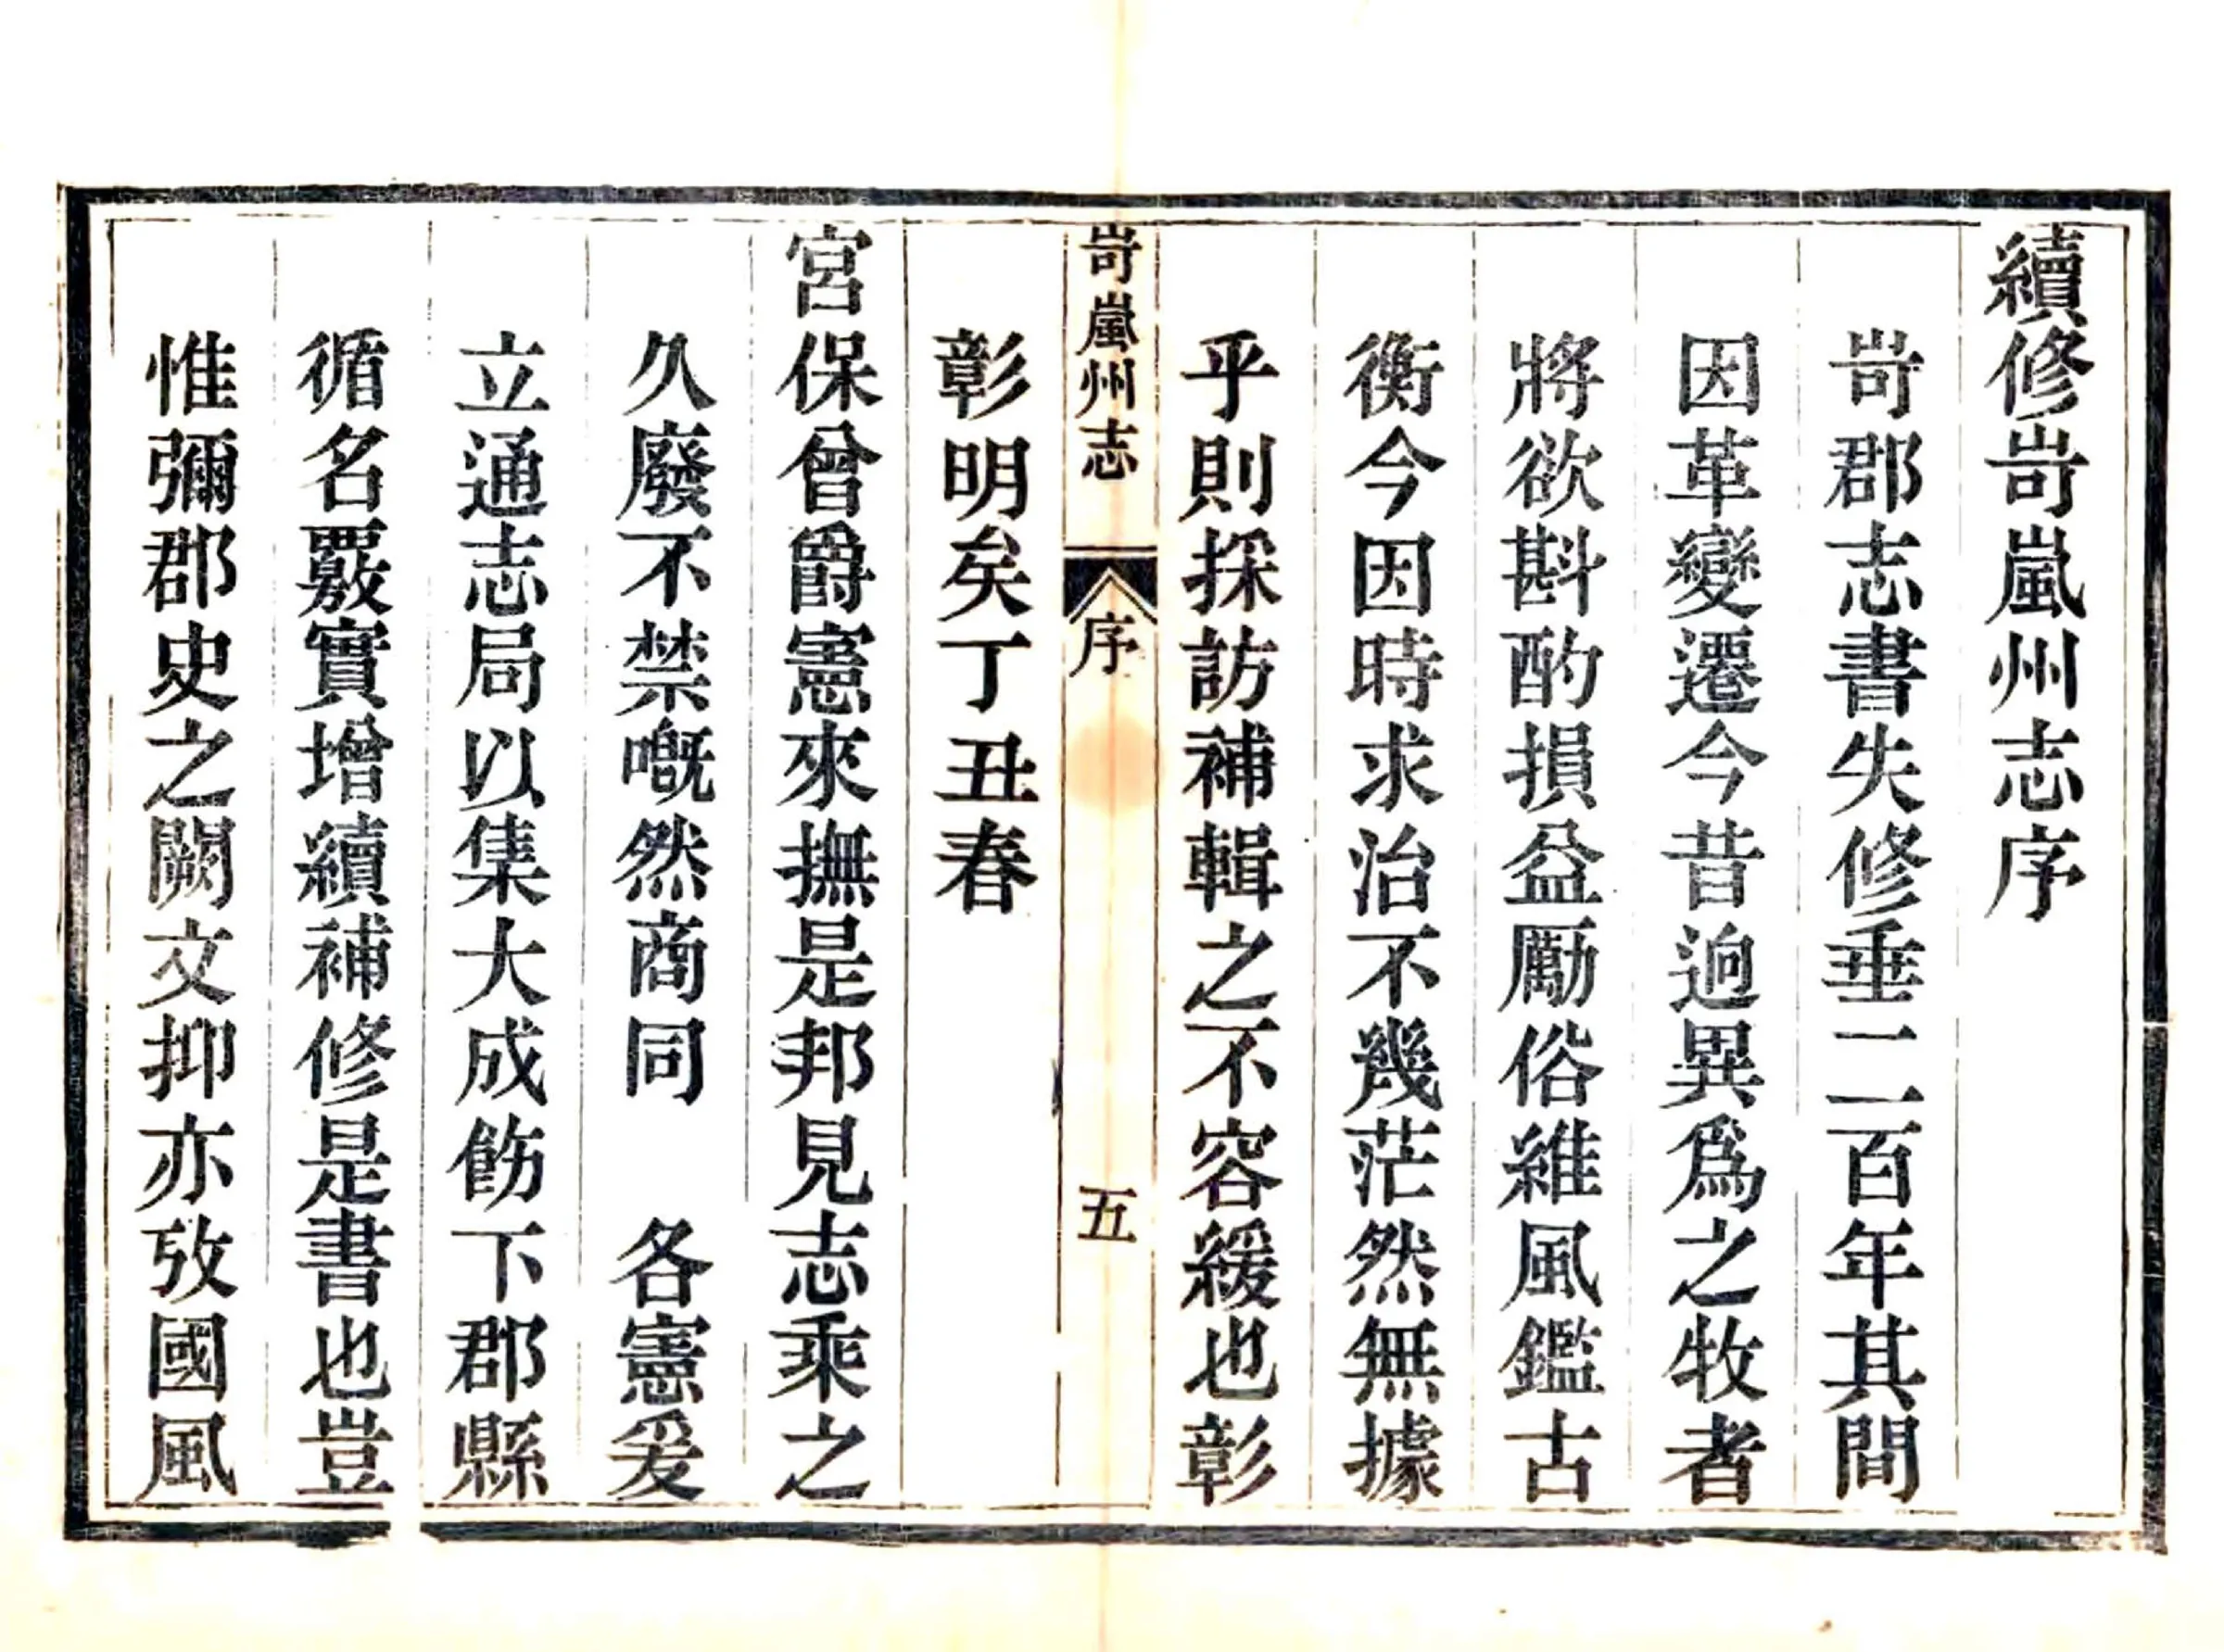 續修岢嵐州志序
岢郡志書失修垂二百年其間
因革變遷今昔逈異爲之牧者
將欲斟酌損益勵俗維風鑑古
衡今因時求治不幾茫然無據
乎則採訪補輯之不容緩也彰
岢嵐州志 序 五
彰明矣丁丑春
宮保曾爵憲來撫是邦見志乘之
久廢不禁嘅然商同 各憲爰
立通志局以集大成飭下郡縣
循名覈實增續補修是書也豈
惟彌郡史之闕文抑亦攷國風